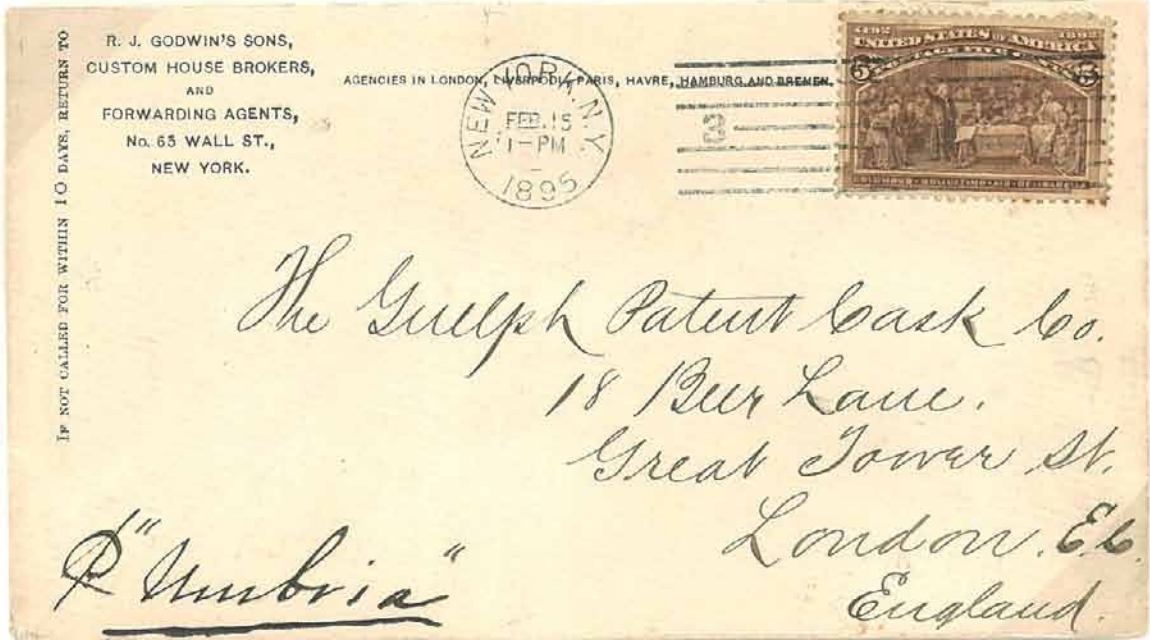 IF NOT CALLED FOR WITHIN 10 DAYS, RETURN TO
R. J. GODWIN'S SONS,
CUSTOM HOUSE BROKERS,
AND
FORWARDING AGENTS,
No. 63 WALL ST.,
NEW YORK.
AGENCIES IN LONDON, LIVERPOOL, PARIS, HAVRE, HAMBURG AND BREMEN.
NEW YORK, N.Y.
FEB. 15
1-PM
1895
3
1492 1892
UNITED STATES OF AMERICA
5 POSTAGE FIVE CENTS 5
The Guelph Patent Cask Co.
18 Beer Lane.
Great Tower St.
London. E.C.
England.
P "Umbria"